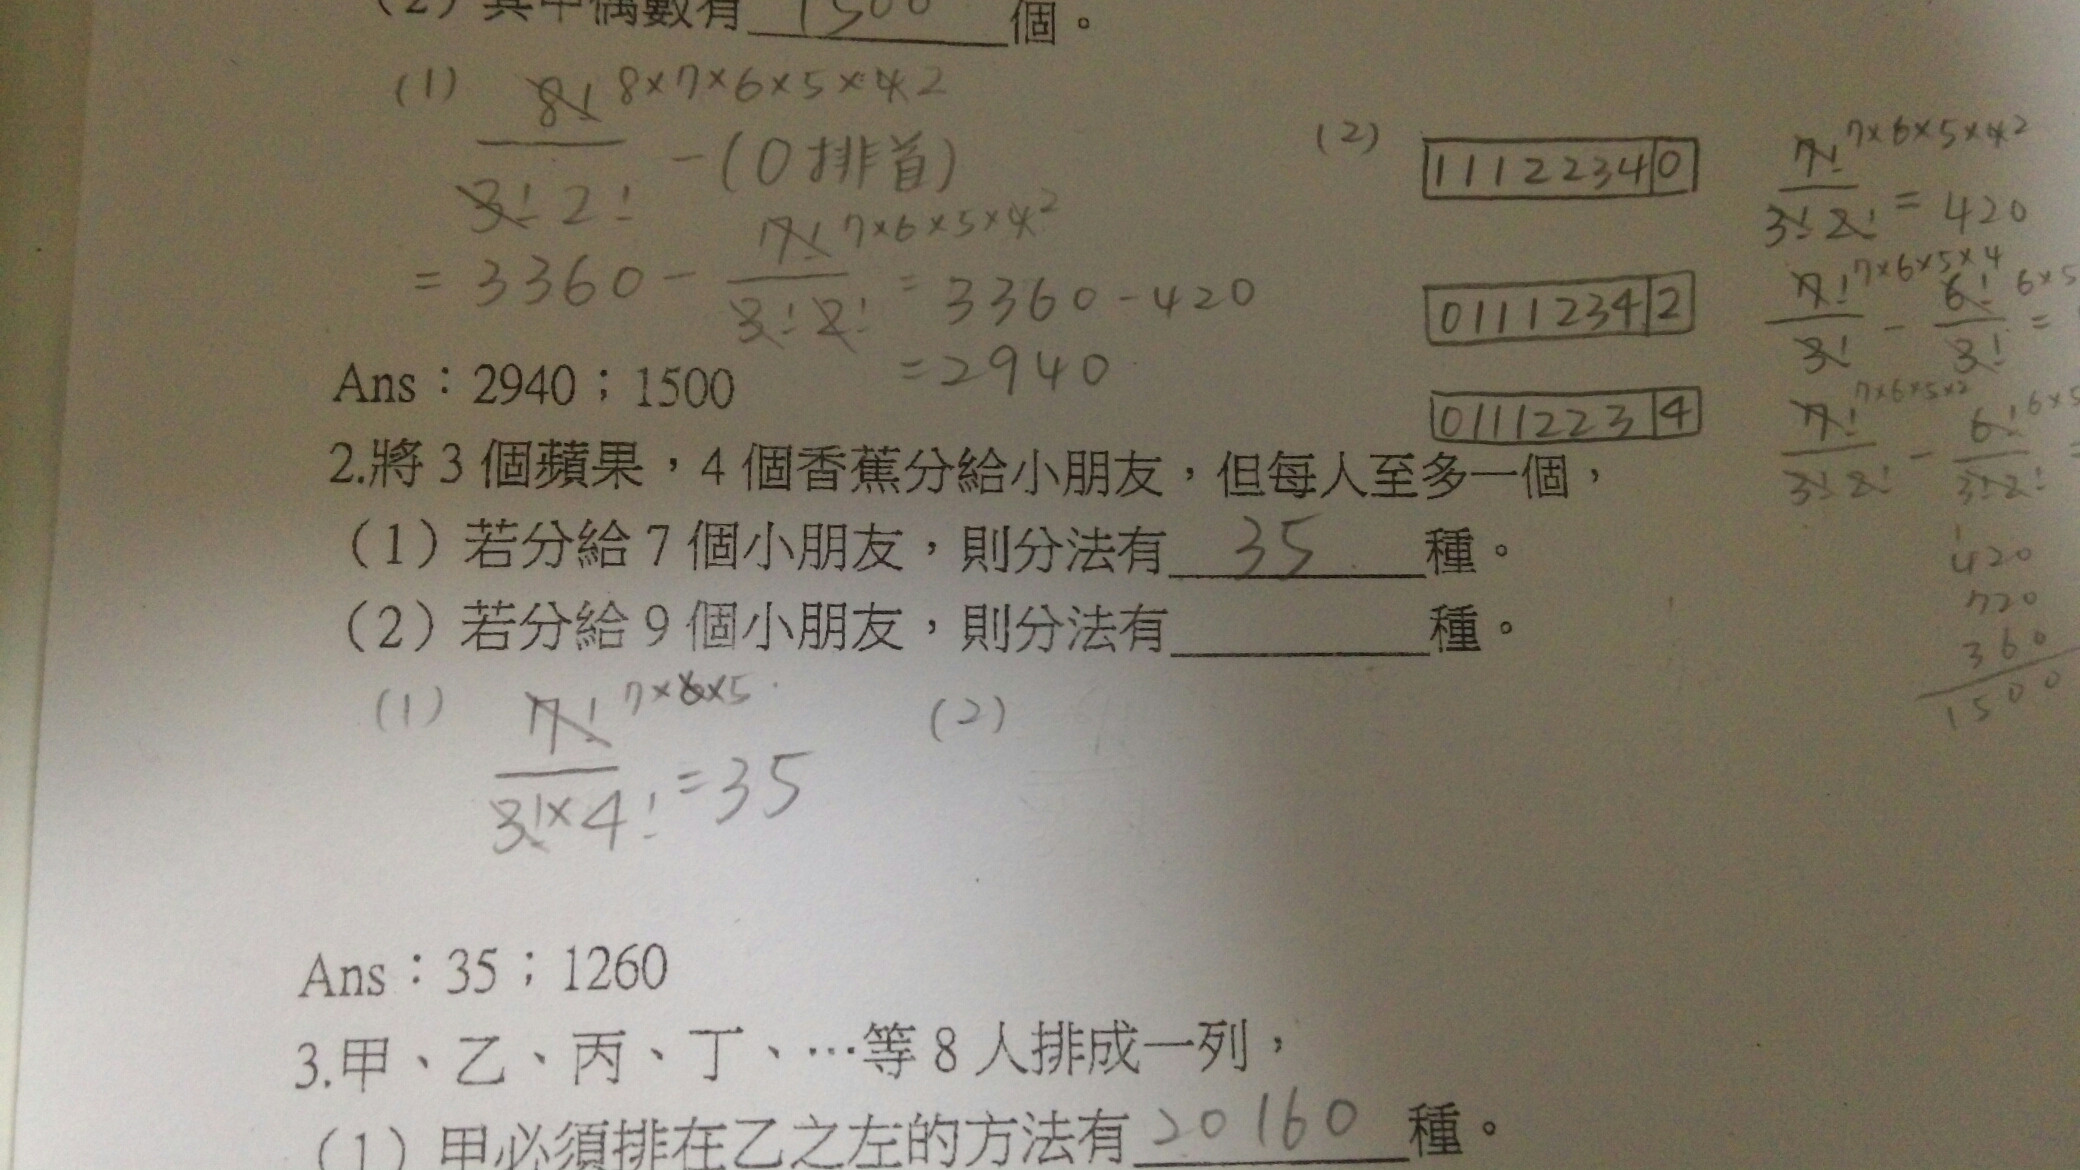 (2)其中偶數有 1500 個。
(1) 8! 8×7×6×5×4 2
3! 2! -(0排首)
= 3360 - 7! 7×6×5×4 2
3! 2! = 3360-420
=2940
(2) 11122340 7! 7×6×5×4 2
3! 2! = 420
01112342 7! 7×6×5×4
3! - 6! 6×5
3! =
01112234 7! 7×6×5×2
3! 2! - 6! 6×5
3! 2! =
1
420
720
360
1500
Ans:2940;1500
2.將 3 個蘋果,4 個香蕉分給小朋友,但每人至多一個,
(1)若分給 7 個小朋友,則分法有 35 種。
(2)若分給 9 個小朋友,則分法有______種。
(1) 7! 7×6×5
3!×4! =35
(2)
Ans:35;1260
3.甲、乙、丙、丁、…等 8 人排成一列,
(1)甲必須排在乙之左的方法有 20160 種。